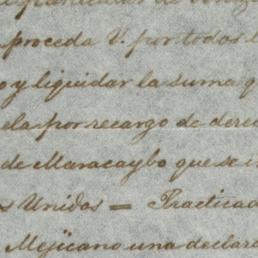 proceda V. por todos l
o y liquidar la suma q
ela por recargo de derec
de Maracaybo que se i
s Unidos = Practicad
Mejicano una declara